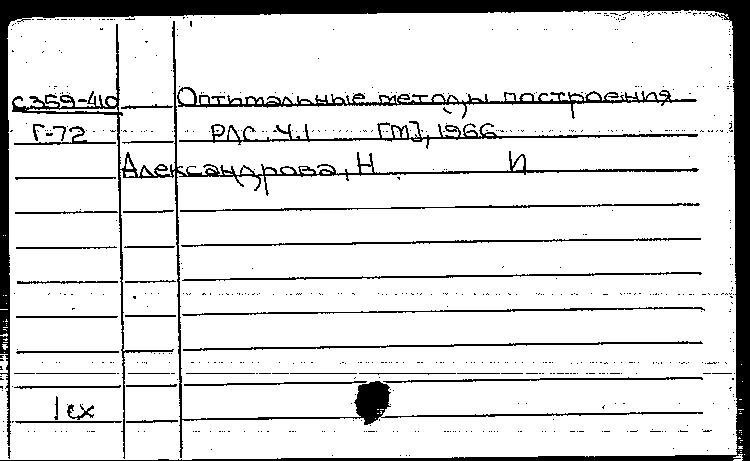 С359-410 Оптимальные методы построения
Г-72 РЛС. Ч.1 [М], 1966
Александрова, Н. И
1 ex